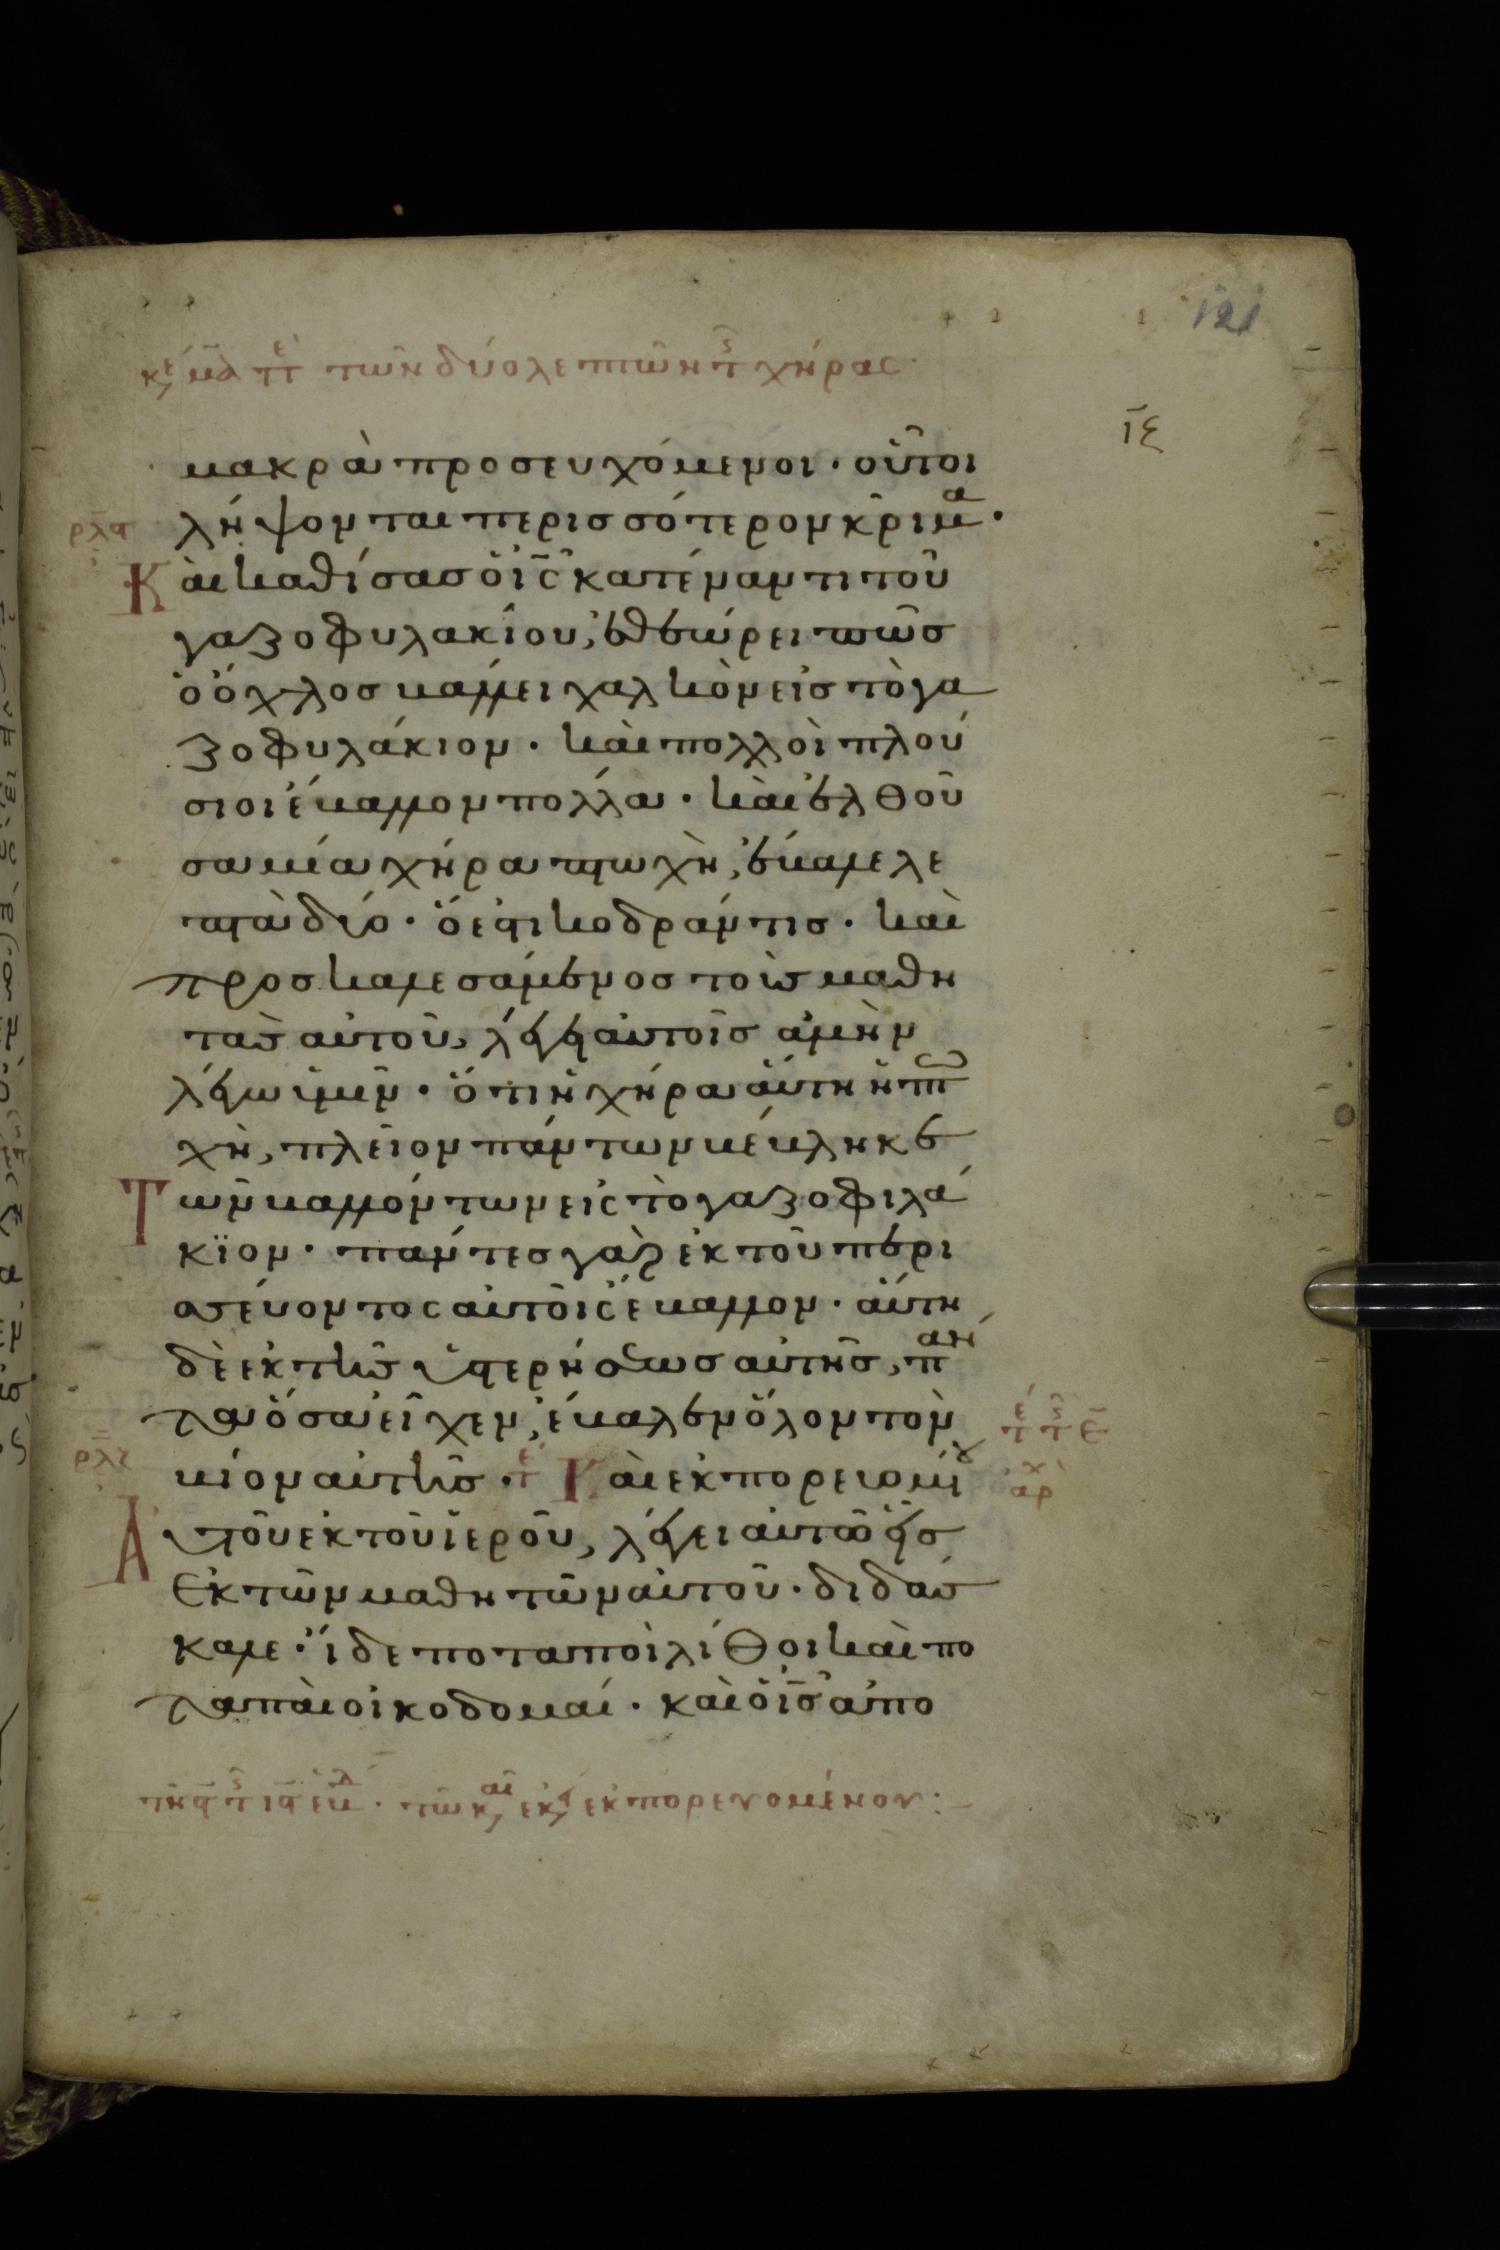 121
κε μα περι των δύο λεπτων τ χήρας
ιξ
μακρὰ προσευχόμενοι · οὗτοι
ρλϛ
λήψονται περισσότερον κρῖμα ·
Καὶ καθίσας ὁ ις κατέναντι τοῦ
γαζοφυλακίου, ἐθεώρει πῶς
ὁ ὄχλος βάλλει χαλκὸν εἰς τὸ γα
ζοφυλάκιον · καὶ πολλοὶ πλού
σιοι ἔβαλλον πολλά · καὶ ἐλθοῦ
σα μία χήρα πτωχὴ, ἔβαλε λε
πτὰ δύο · ὅ ἐστι κοδράντις · καὶ
προσκαλεσάμενος τοὺς μαθη
τὰς αὐτοῦ, λέγει αὐτοῖς ἀμὴν
λέγω ὑμῖν · ὅτι ἡ χήρα αὕτη ἡ πτω
χὴ, πλεῖον πάντων βέβληκε
Τῶν βαλλόντων εἰς τὸ γαζοφιλά
κϊον · πάντες γὰρ ἐκ τοῦ περι
σσεύοντος αὐτοῖς ἔβαλλον · αὕτη
δὲ ἐκ τῆς ὑστερήσεως αὐτῆς, πάν
τα ὅσα εἶχεν, ἔβαλεν ὅλον τὸν
βίον αὐτῆς · Καὶ ἐκπορευομένου
Αὐτοῦ ἐκ τοῦ ἱεροῦ, λέγει αὐτῶ εἷς
ἐκ τῶν μαθητῶν αὐτοῦ · διδάσ
καλε · ἴδε ποταποὶ λίθοι καὶ πο
ταπαὶ οἰκοδομαί · καὶ ὁ ις ἀπο
ἐκπορευομένου :-